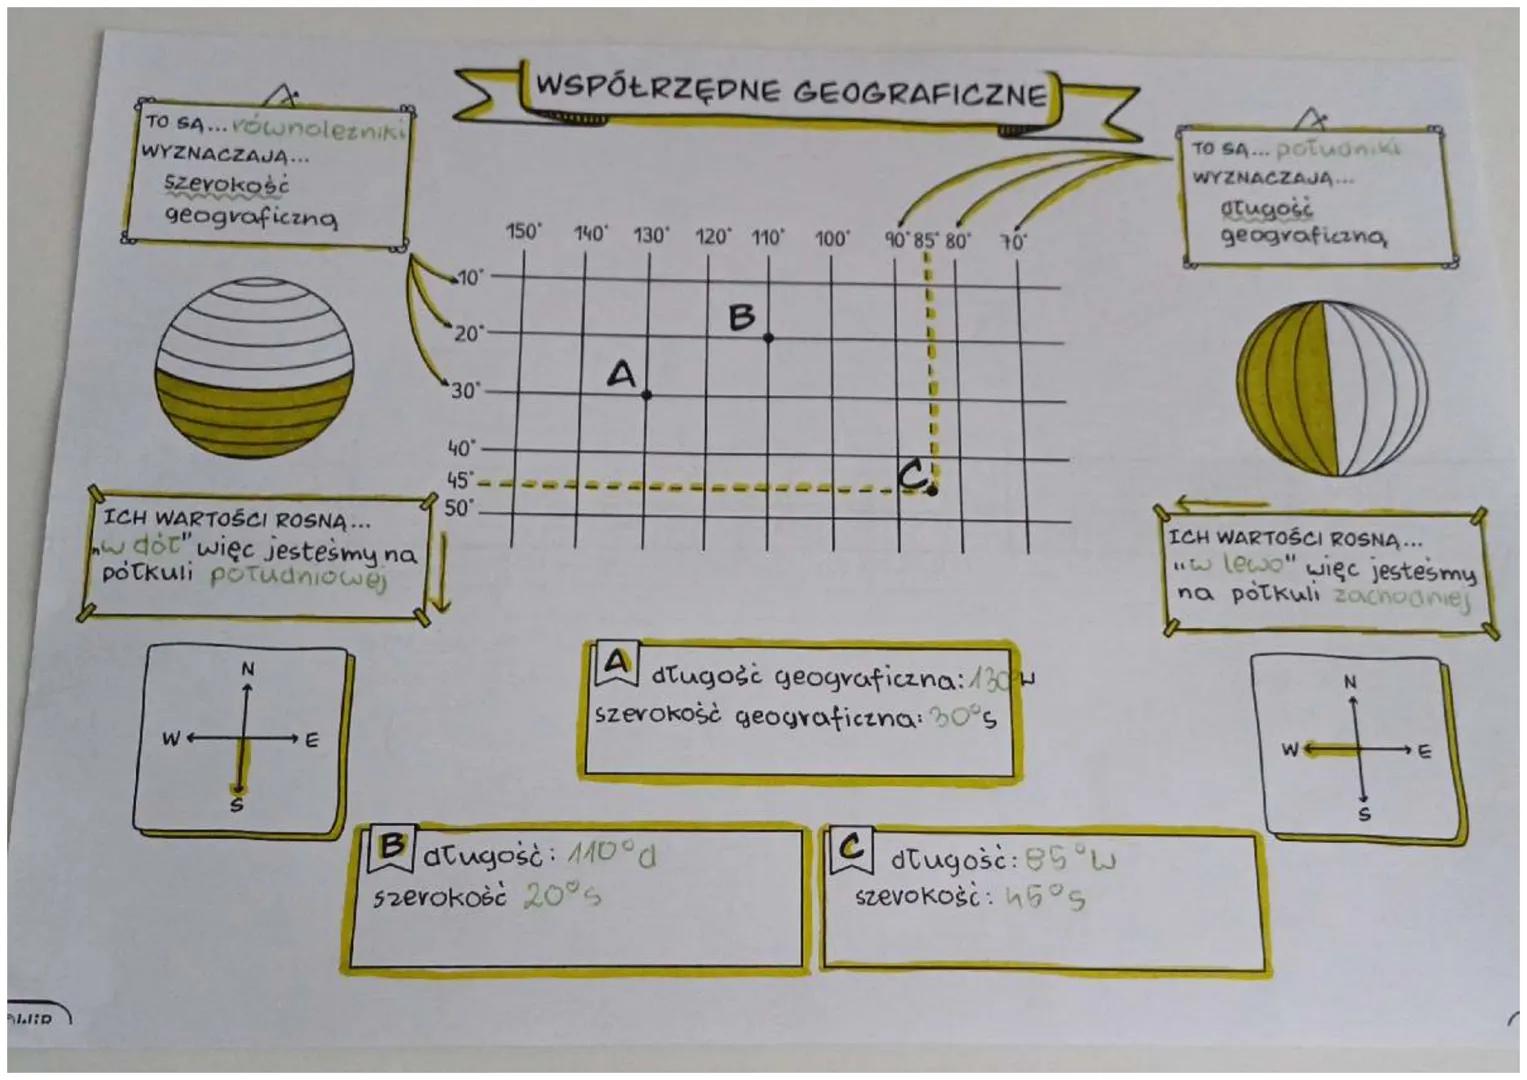 WSPÓŁRZĘDNE GEOGRAFICZNE
TO SĄ... równoleżniki
WYZNACZAJĄ...
szerokość
geograficzną
TO SĄ... południki
WYZNACZAJĄ...
długość
geograficzną
150° 140° 130° 120° 110° 100° 90° 85° 80° 70°
10°
20°
30°
40°
45°
50°
B
A
C
ICH WARTOŚCI ROSNĄ...
„w dół" więc jesteśmy na
półkuli południowej
ICH WARTOŚCI ROSNĄ...
"w lewo" więc jesteśmy
na półkuli zachodniej
N
W E
S
N
W E
S
A długość geograficzna: 130°W
szerokość geograficzna: 30°S
B długość: 110°d
szerokość 20°S
C długość: 85°W
szerokość: 45°S